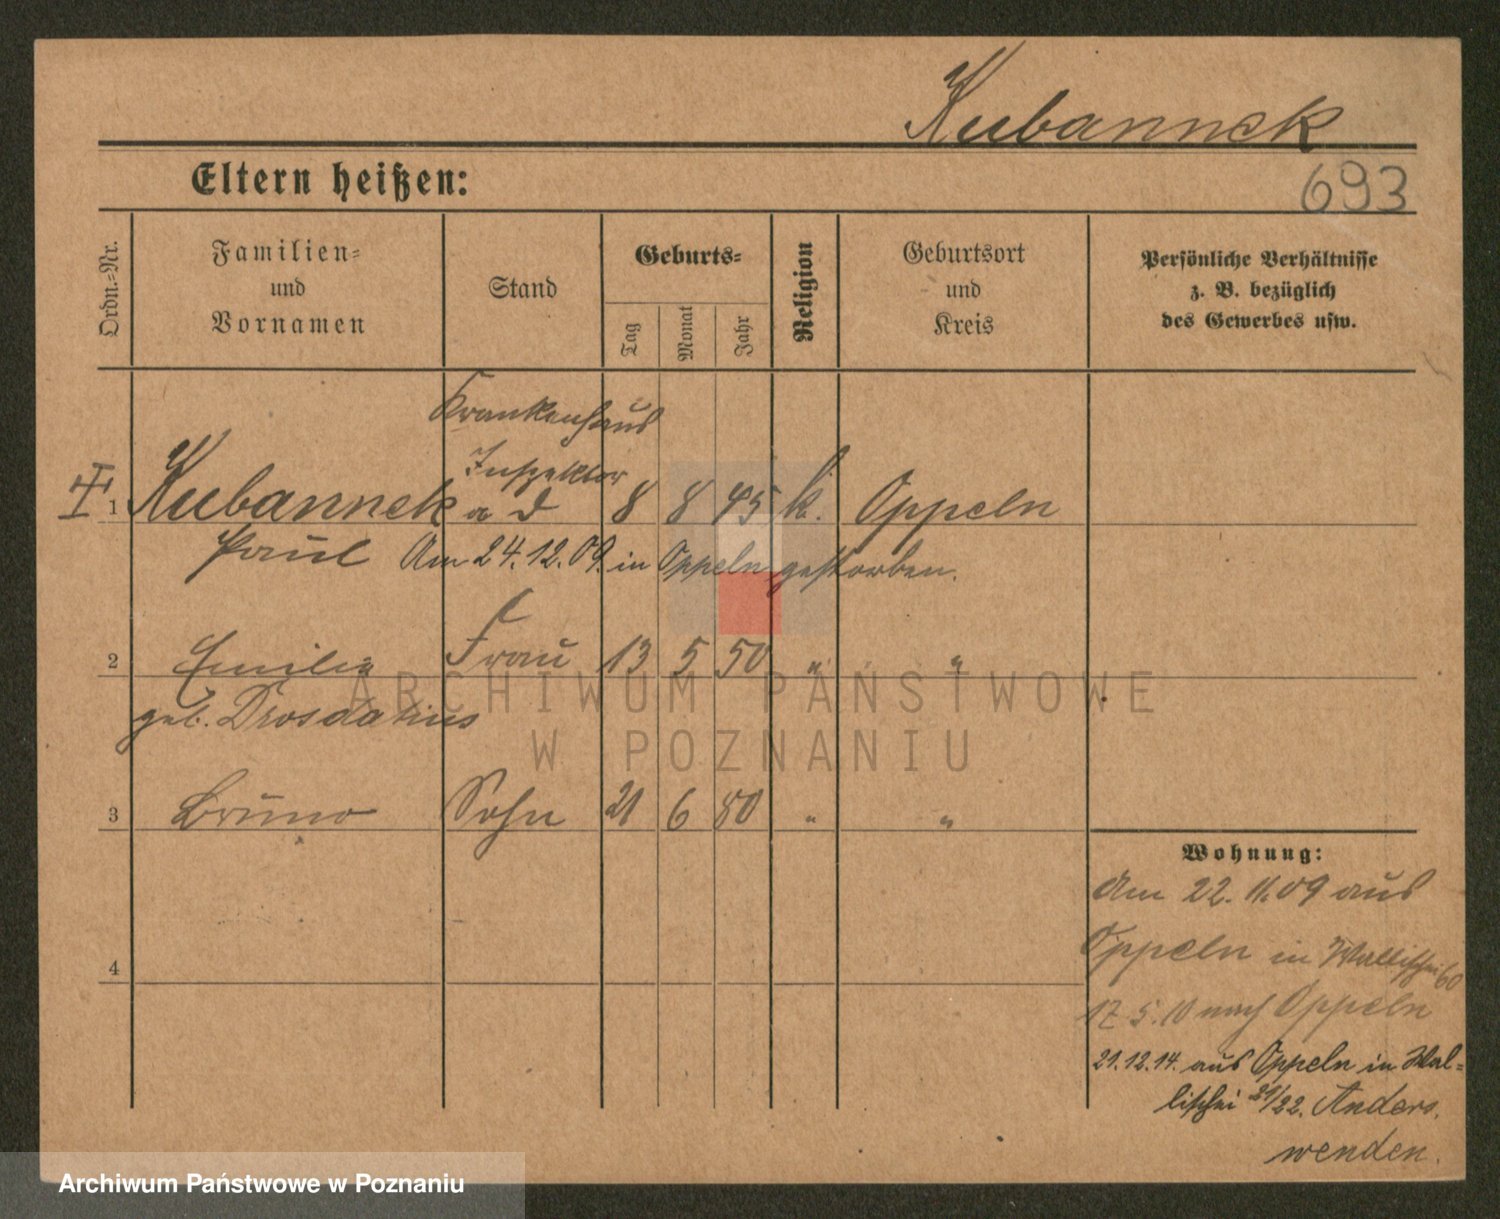 Kubannek
Eltern heißen:
693
Ordn.-Nr.
Familien-
und
Vornamen
Stand
Geburts-
Tag
Monat
Jahr
Religion
Geburtsort
und
Kreis
Persönliche Verhältnisse
z. B. bezüglich
des Gewerbes usw.
Krankenhaus
Inspektor
1 Kubannek a D 8 8 45 k. Oppeln
Paul Am 24.12.09. in Oppeln gestorben.
2 Emilie Frau 13 5 50 " "
geb. Drosdatius
3 Bruno Sohn 21 6 80 " "
4
Wohnung:
Am 22.11.09 aus
Oppeln in Wallischei 60
17 5.10 nach Oppeln
21.12.14. aus Oppeln in Wal-
lischei 21/22. Anders.
wenden.
ARCHIWUM PAŃSTWOWE
W POZNANIU
Archiwum Państwowe w Poznaniu